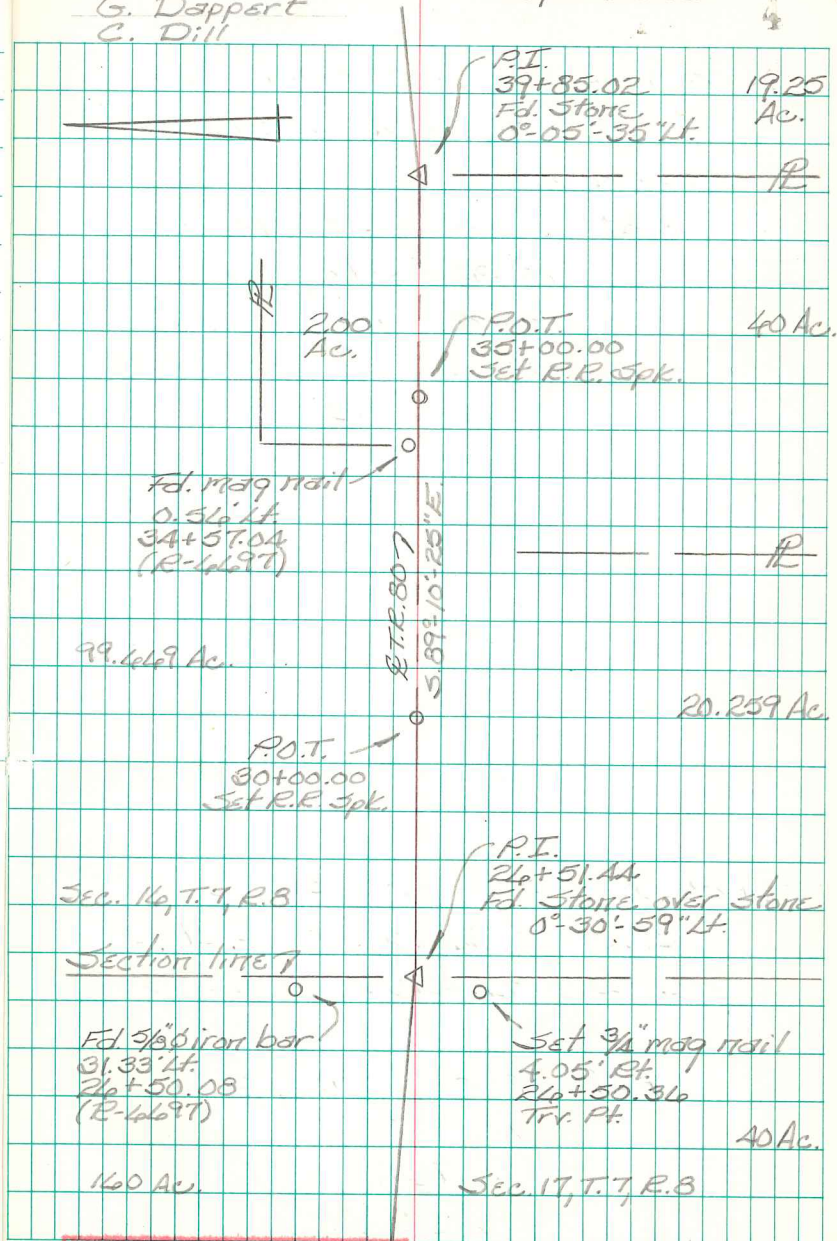 G. Dappert
C. Dill
P.I.
39+85.02
Fd. Stone
0°-05'-35" Lt.
19.25
Ac.
PL
PL
2.00
Ac.
P.O.T.
35+00.00
Set R.R. Spk.
40 Ac.
Fd. mag nail
0.56' Lt.
34+57.04
(R-6697)
℄ T.R. 80
S.89°-10'-25"E.
PL
99.669 Ac.
20.259 Ac.
P.O.T.
30+00.00
Set R.R. Spk.
P.I.
26+51.44
Fd. Stone over stone
0°-30'-59" Lt.
Sec. 16, T.7, R.8
Section line
Fd 5/8"ø iron bar
31.33' Lt.
26+50.08
(R-6697)
Set 3/4" mag nail
4.05' Rt.
26+50.36
Trv. Pt.
40 Ac.
160 Ac.
Sec. 17, T.7, R.8